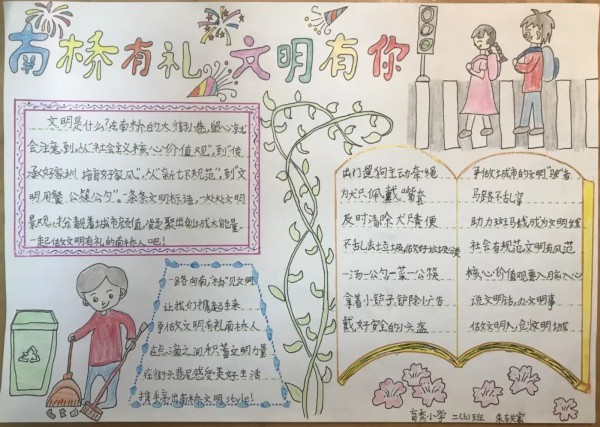 南桥有礼 文明有你
文明是什么?在南桥的大街小巷,留心就
会注意到,从“社会主义核心价值观”,到“传
承好家训,培育好家风”,从“七不规范”,到“文
明用餐,公筷公勺”。一条条文明标语,一处处文明
景观,扮靓着城市颜值,凝聚出创城大能量,
一起做文明有礼的南桥人吧!
一路向南,“拾”见文明
让我们携起手来
争做文明有礼南桥人
在点滴之间积蓄文明力量
在街头巷尾感受美好生活
携手亮出南桥文明style!
出门遛狗主动牵绳
为犬只佩戴嘴套
及时清除犬只粪便
不乱丢垃圾,做好垃圾分类
一汤一公勺一菜一公筷
拿着小铲子,铲除小广告
戴好安全的小头盔
争做城市的文明“驶”者
马路不乱穿
助力斑马线成为文明线
社会有规范,文明有风范
核心价值观要入脑入心
说文明话,办文明事
做文明人,创文明城
小学 二(6)班 朱